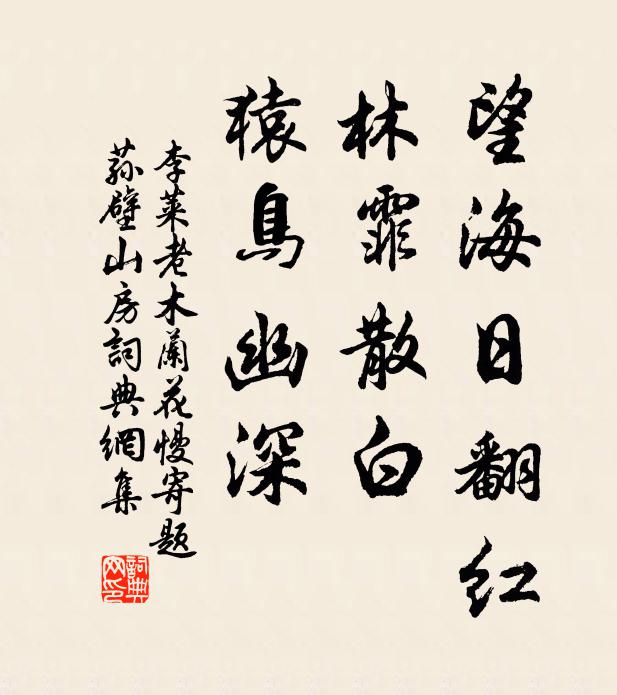 望海日翻紅
林霏散白
猿鳥幽深
李萊老木蘭花慢寄題
蓀壁山房詞典網集
詞典
网印